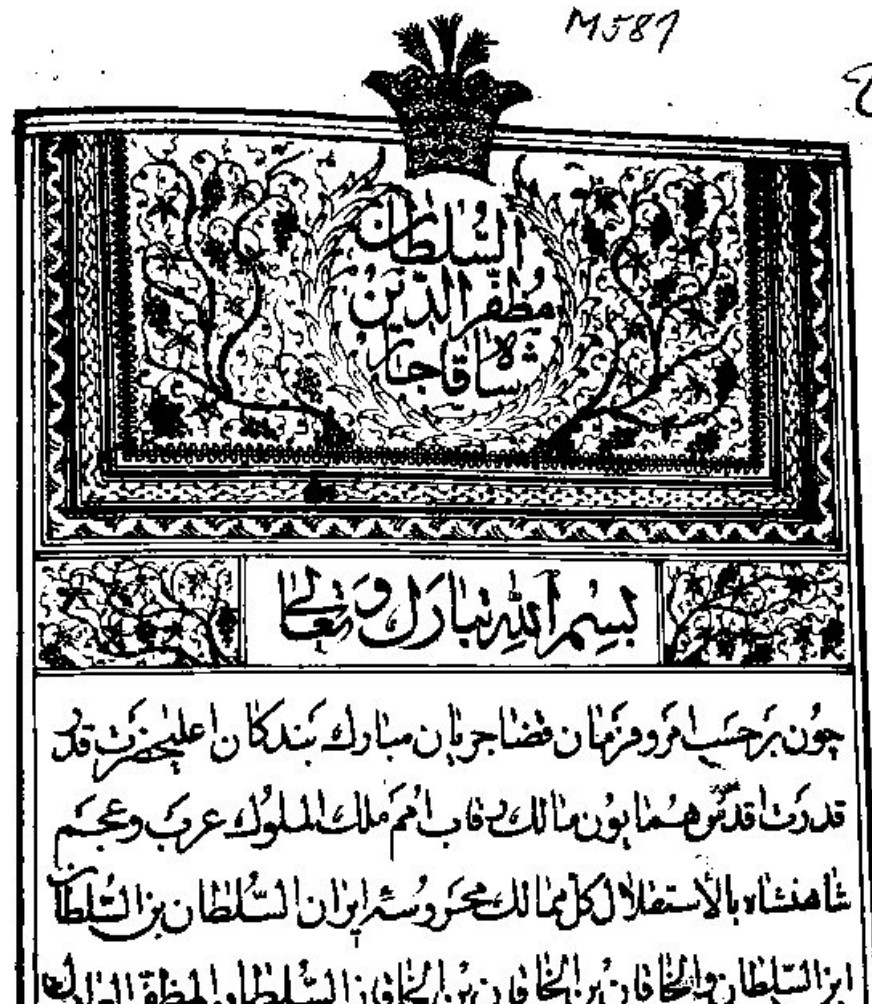 M587
السُلطان
مُظفّر الدّین
شاه قاجار
بِسْمِ اَللهِ تَبارَكَ وَ تَعالیٰ
چون بَر حَسَب امر و فرمان قضا جریان مبارك بَندكان اعلیحضرت قدر
قدرت اقدَس هُمایون مالك رقاب اُمَم ملك الملوك عرب و عجم
شاهنشاه بالأستقلال كل ممالك محروسهٔ ایران السّلطان بن السّلطان
ابن السّلطان والخاقان بن الخاقان بن الخاقان السّلطان